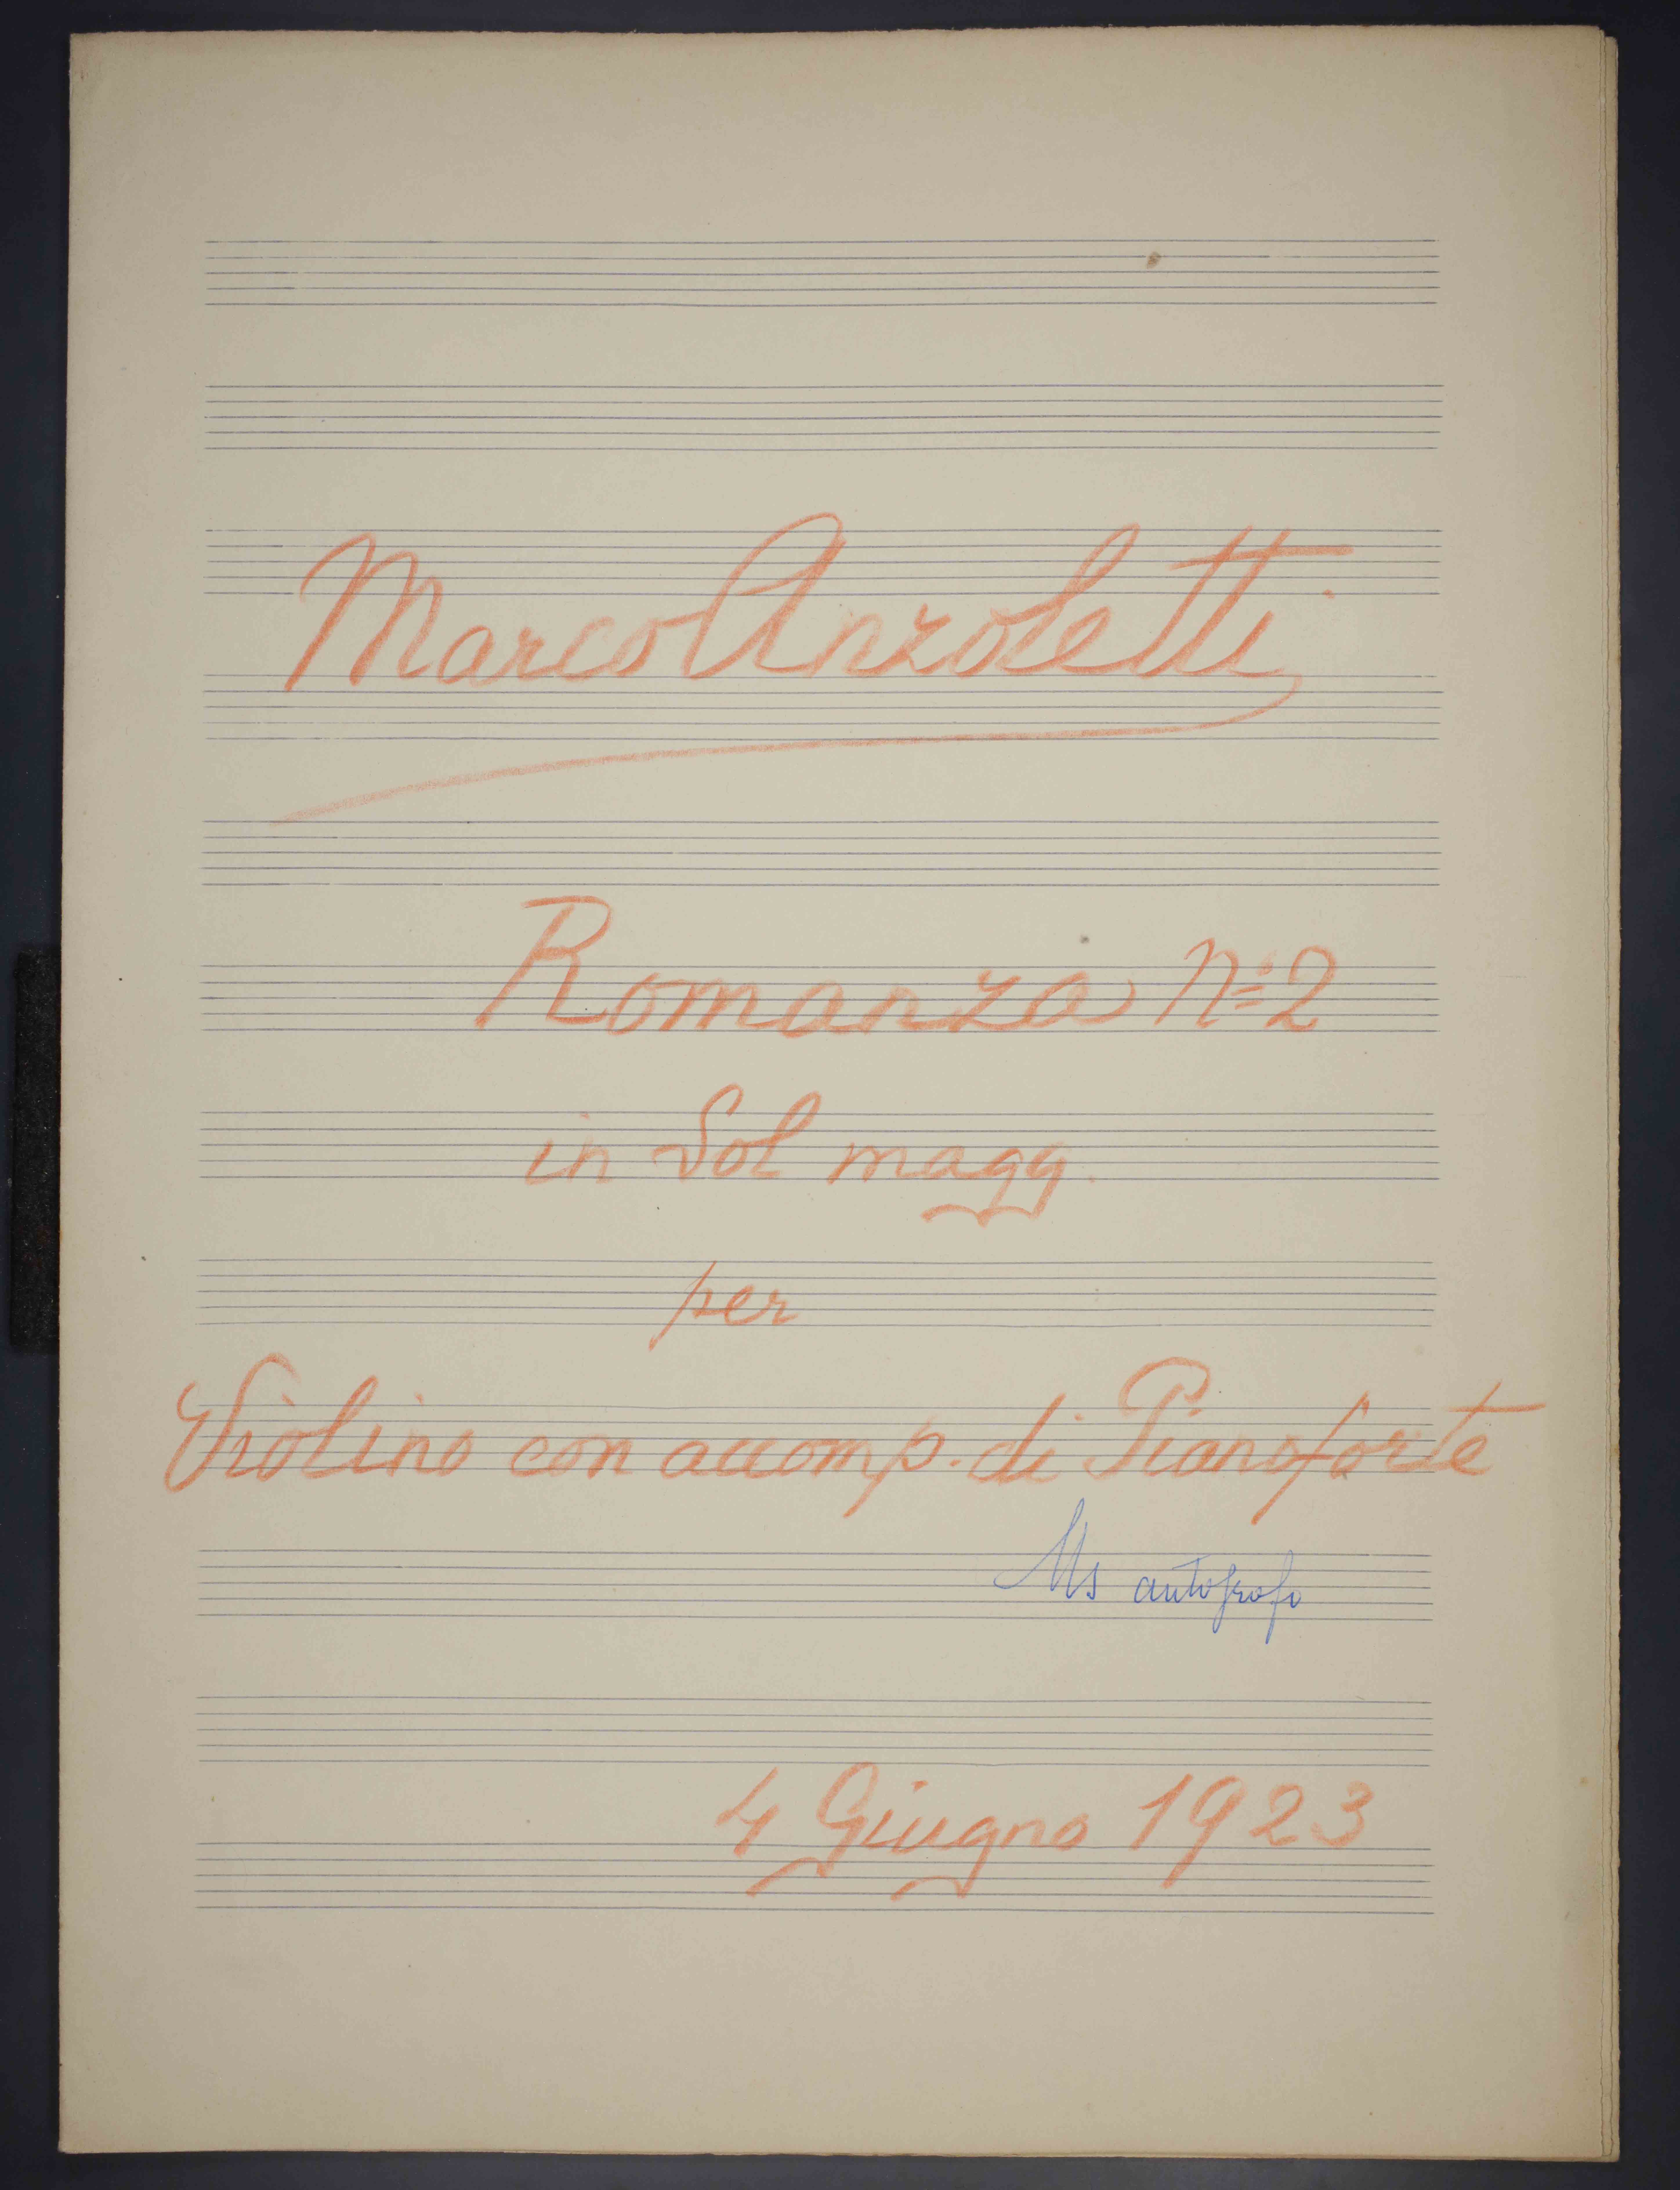 Marco Anzoletti
Romanza Nº 2
in Sol magg.
per
Violino con accomp. di Pianoforte
Ms autografo
4 Giugno 1923